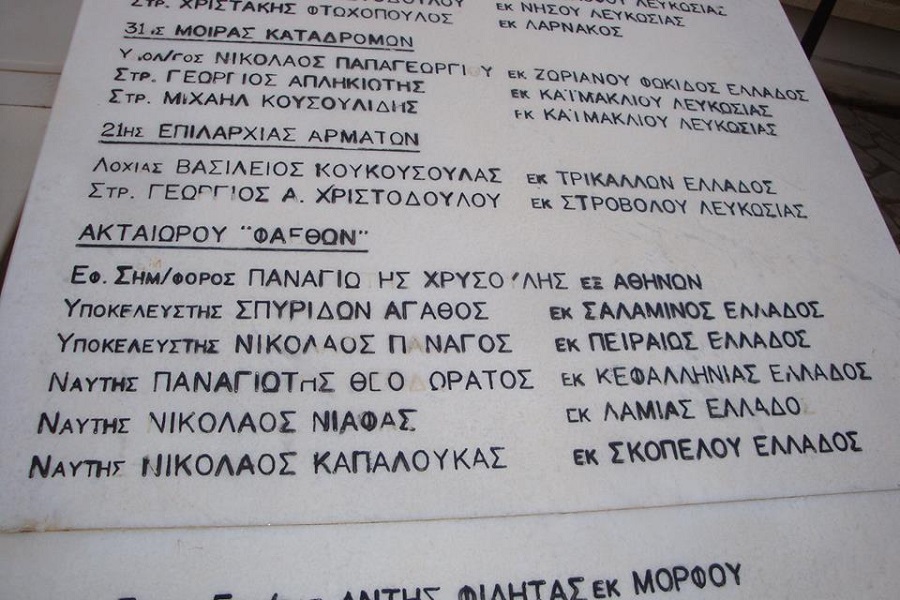 ΣΤΡ. ΧΡΙΣΤΑΚΗΣ ΦΤΩΧΟΠΟΥΛΟΣ ΕΚ ΛΑΡΝΑΚΟΣ
ΕΚ ΝΗΣΟΥ ΛΕΥΚΩΣΙΑΣ
31ης ΜΟΙΡΑΣ ΚΑΤΑΔΡΟΜΩΝ
ΝΙΚΟΛΑΟΣ ΠΑΠΑΓΕΩΡΓΙΟΥ ΕΚ ΖΩΡΙΑΝΟΥ ΦΩΚΙΔΟΣ ΕΛΛΑΔΟΣ
ΣΤΡ. ΓΕΩΡΓΙΟΣ ΑΠΛΗΚΙΩΤΗΣ ΕΚ ΚΑΪΜΑΚΛΙΟΥ ΛΕΥΚΩΣΙΑΣ
ΣΤΡ. ΜΙΧΑΗΛ ΚΟΥΣΟΥΛΙΔΗΣ ΕΚ ΚΑΪΜΑΚΛΙΟΥ ΛΕΥΚΩΣΙΑΣ
21ΗΣ ΕΠΙΛΑΡΧΙΑΣ ΑΡΜΑΤΩΝ
ΛΟΧΙΑΣ ΒΑΣΙΛΕΙΟΣ ΚΟΥΚΟΥΣΟΥΛΑΣ ΕΚ ΤΡΙΚΑΛΛΩΝ ΕΛΛΑΔΟΣ
ΣΤΡ. ΓΕΩΡΓΙΟΣ Α. ΧΡΙΣΤΟΔΟΥΛΟΥ ΕΚ ΣΤΡΟΒΟΛΟΥ ΛΕΥΚΩΣΙΑΣ
ΑΚΤΑΙΩΡΟΥ "ΦΑΕΘΩΝ"
ΕΦ. ΣΗΜ/ΦΟΡΟΣ ΠΑΝΑΓΙΩΤΗΣ ΧΡΥΣΟΥΛΗΣ ΕΞ ΑΘΗΝΩΝ
ΥΠΟΚΕΛΕΥΣΤΗΣ ΣΠΥΡΙΔΩΝ ΑΓΑΘΟΣ ΕΚ ΣΑΛΑΜΙΝΟΣ ΕΛΛΑΔΟΣ
ΥΠΟΚΕΛΕΥΣΤΗΣ ΝΙΚΟΛΑΟΣ ΠΑΝΑΓΟΣ ΕΚ ΠΕΙΡΑΙΩΣ ΕΛΛΑΔΟΣ
ΝΑΥΤΗΣ ΠΑΝΑΓΙΩΤΗΣ ΘΕΟΔΩΡΑΤΟΣ ΕΚ ΚΕΦΑΛΛΗΝΙΑΣ ΕΛΛΑΔΟΣ
ΝΑΥΤΗΣ ΝΙΚΟΛΑΟΣ ΝΙΑΦΑΣ ΕΚ ΛΑΜΙΑΣ ΕΛΛΑΔΟ
ΝΑΥΤΗΣ ΝΙΚΟΛΑΟΣ ΚΑΠΑΛΟΥΚΑΣ ΕΚ ΣΚΟΠΕΛΟΥ ΕΛΛΑΔΟΣ
ΦΙΛΗΤΑΣ ΕΚ ΜΟΡΦΟΥ